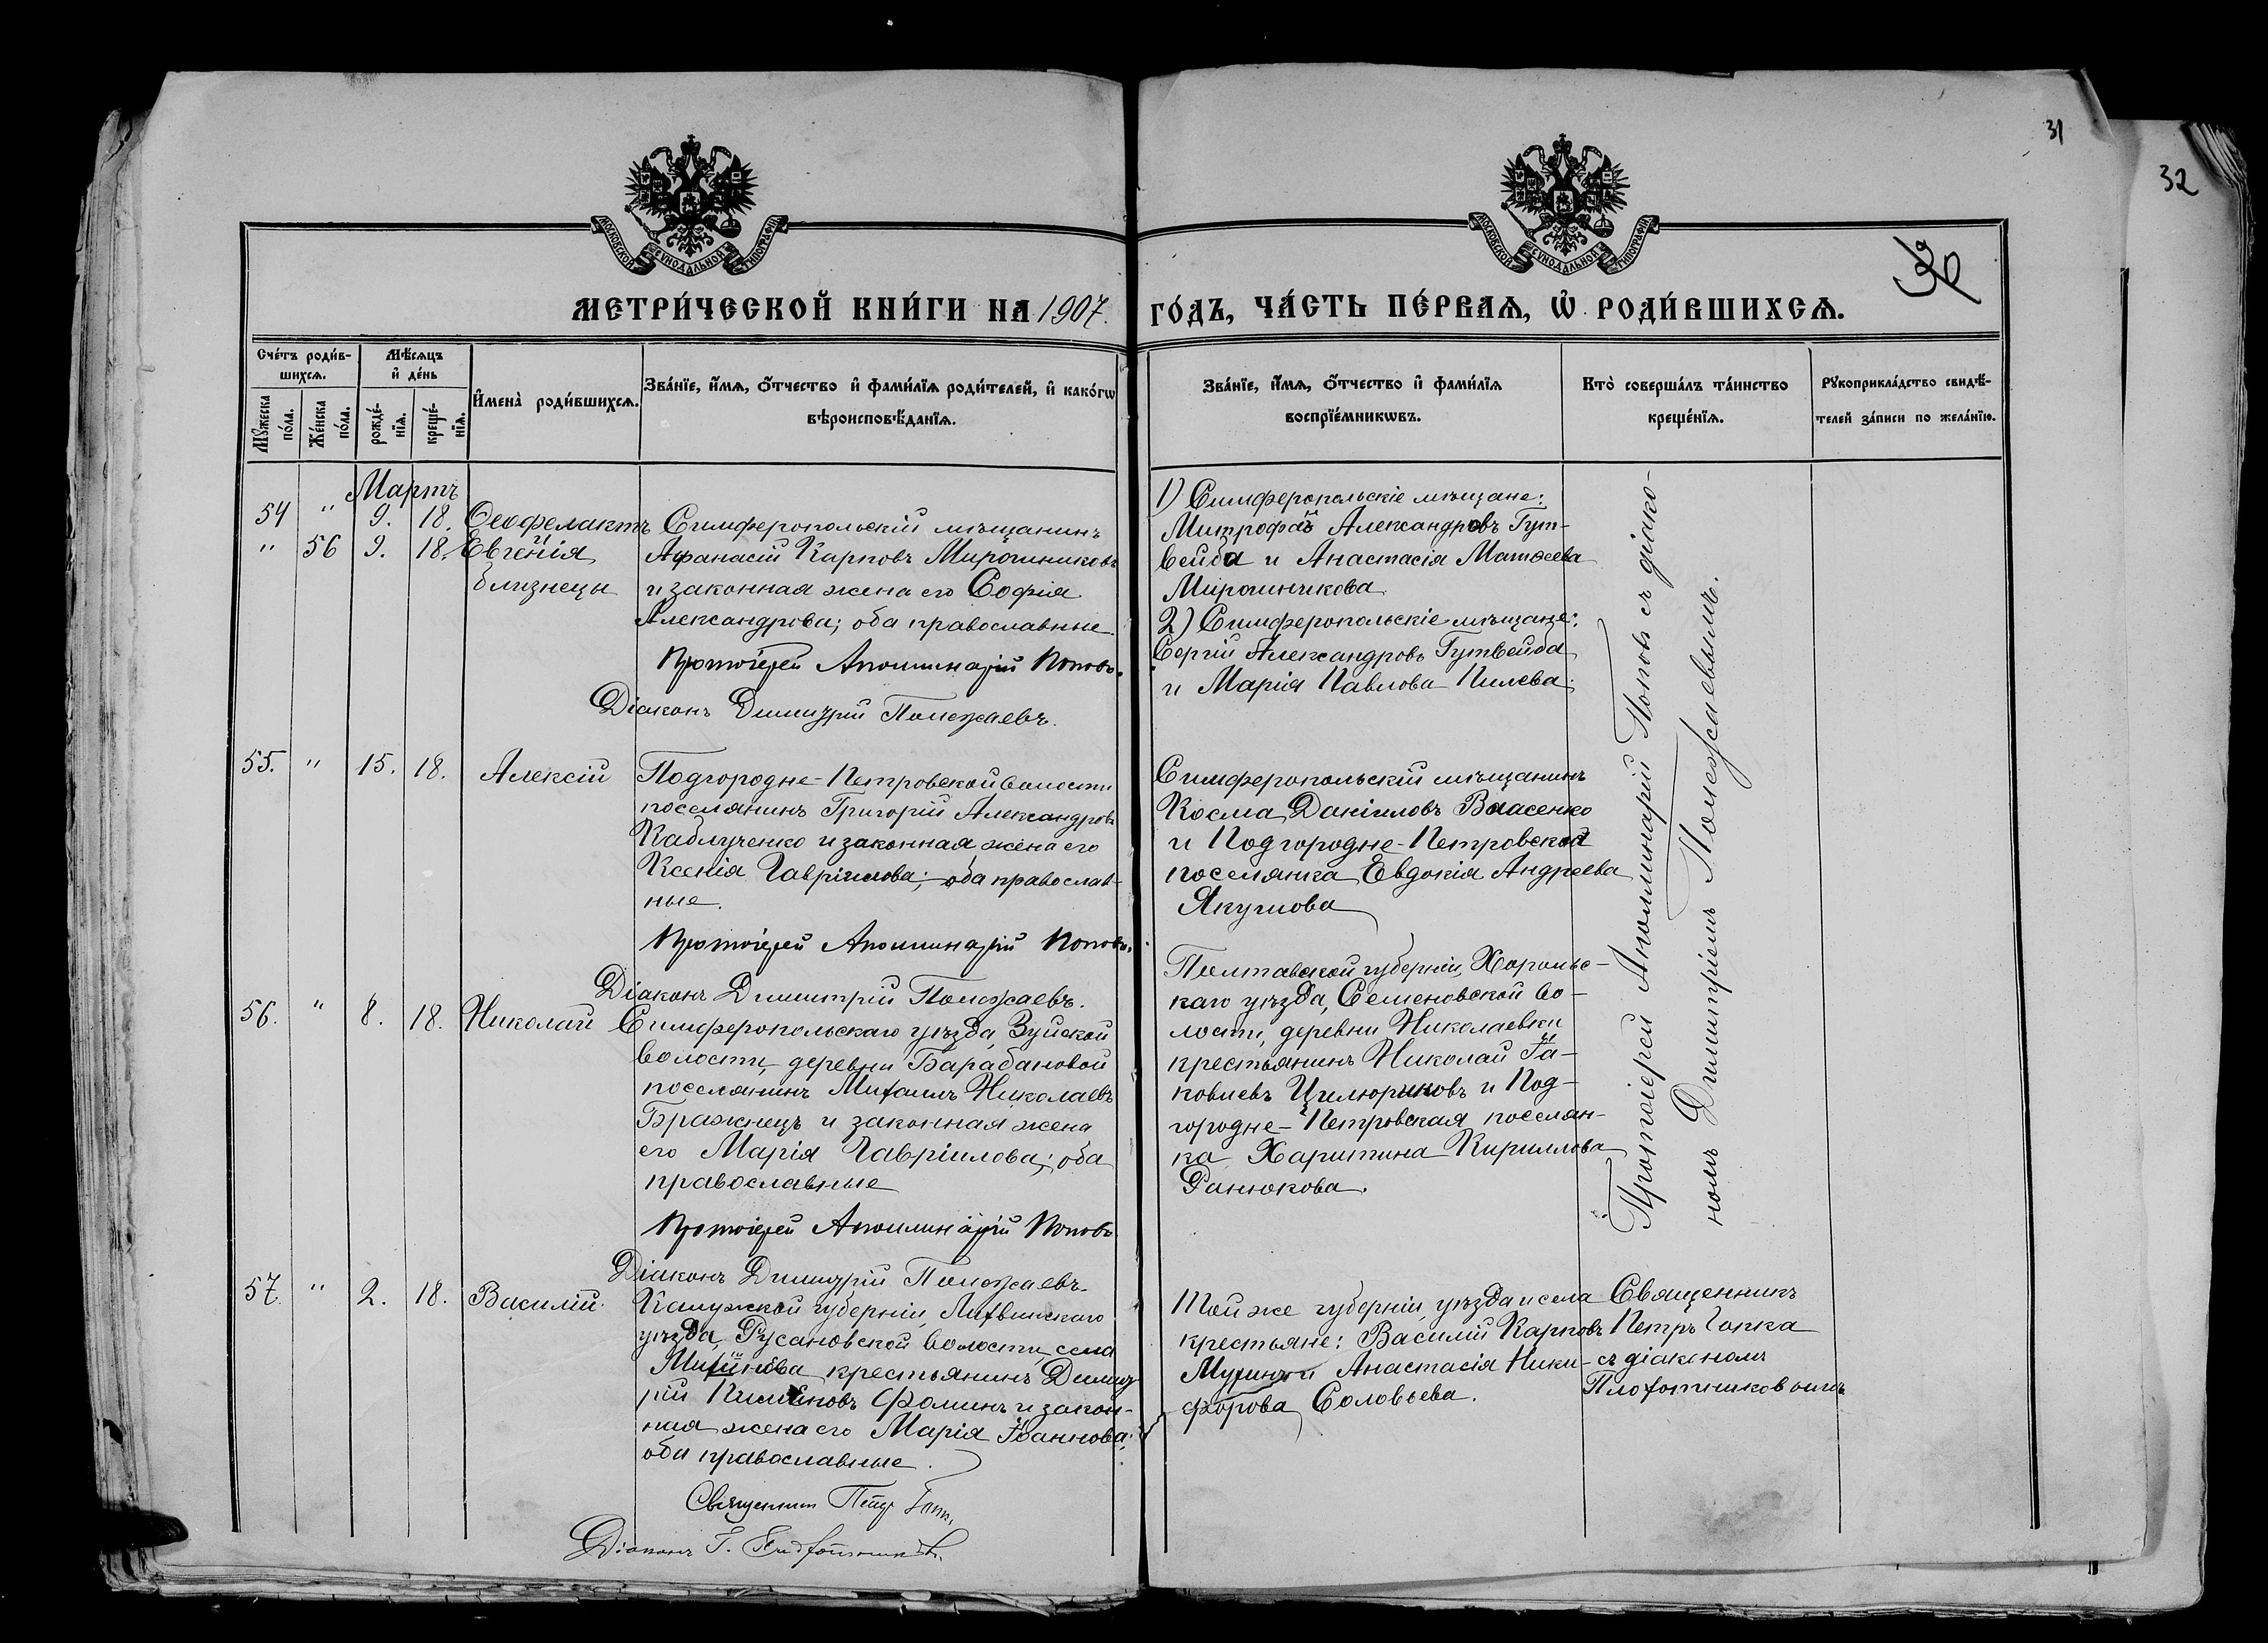 31
32
МОСКОВСКОЙ СѴНОДАЛЬНОЙ ТИПОГРАФІИ
МОСКОВСКОЙ СѴНОДАЛЬНОЙ ТИПОГРАФІИ
МЕТРИ́ЧЕСКОЙ КНИ́ГИ НА 1907.
ГО́ДЪ, ЧА́СТЬ ПЕ́РВАѦ, Ѡ РОДИ́ВШИХСѦ.
Сче́тъ роди́в-
шихсѧ.
Мѣ́сѧцъ
и҆ де́нь
Мꙋ́жеска
по́ла.
Же́нска
по́ла.
рожде́-
нїѧ.
креще́-
нїѧ.
И҆мена̀ роди́вшихсѧ.
Зва́нїе, и҆́мѧ, ѻ҆́тчество и҆ фами́лїѧ роди́телей, и҆ како́гѡ
вѣроисповѣ́данїѧ.
Зва́нїе, и҆́мѧ, ѻ҆́тчество и҆ фами́лїѧ
воспрїе́мникѡвъ.
Кто̀ соверша́лъ та́инство
креще́нїѧ.
Рꙋкоприкла́дство свидѣ́-
телей за́писи по жела́нїю.
Мартъ
54 " 9. 18. Ѳеофелактъ
" 56 9. 18. Евгенія
близнецы
Симферопольскій мѣщанинъ
Афанасій Карповъ Мирошниковъ
и законная жена его Софія
Александрова; оба православные.
Протоіерей Аполлинарій Поповъ.
Діаконъ Димитрій Полежаевъ.
1) Симферопольскіе мѣщане:
Митрофанъ Александровъ Гут-
вейба и Анастасія Матѳеева
Мирошникова
2) Симферопольскіе мѣщане:
Сергій Александровъ Гутвейба
и Марія Павлова Пилева.
55. " 15. 18. Алексій
Подгородне-Петровской волости
поселянинъ Григорій Александровъ
Каблученко и законная жена его
Ксенія Гавріилова; оба православ-
ные.
Протоіерей Аполлинарій Поповъ.
Діаконъ Димитрій Полежаевъ.
Симферопольскій мѣщанинъ
Косма Даніиловъ Власенко
и Подгородне-Петровской
поселянка Евдокія Андреева
Якушова
56. " 8. 18. Николай
Симферопольскаго уѣзда, Зуйской
волости, деревни Барабановой
поселянинъ Михаилъ Николаевъ
Бражнецъ и законная жена
его Марія Гавріилова; оба
православные
Протоіерей Аполлинарій Поповъ
Діаконъ Димитрій Полежаевъ
Полтавской губерніи, Хорольс-
каго уѣзда, Семеновской во-
лости, деревни Николаевки
крестьянинъ Николай Іа-
ковлевъ Цилюриковъ и Под-
городне-Петровская поселян-
ка Харитина Кириллова
Ранюкова.
Протоіерей Аполлинарій Поповъ съ діако-
номъ Димитріемъ Полежаевымъ.
57. " 2. 18. Василій
Калужской губерніи, Лихвинскаго
уѣзда, Русановской волости, села
крестьянинъ Димит-
рій Пименовъ Фоминъ и закон-
ная жена его Марія Іоаннова;
оба православные.
Священникъ Петръ
Діаконъ
Той же губерніи, уѣзда и села
крестьяне: Василій Карповъ
Мухинъ и Анастасія Ники-
форова Соловьева.
Священникъ
Петръ Гапка
съ діакономъ
Плохотниковымъ